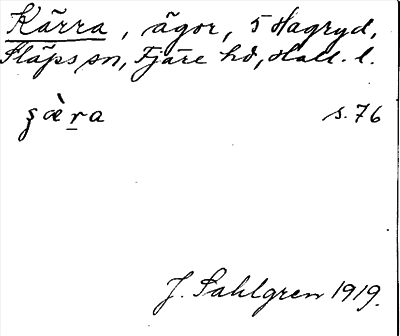 Kärra, ägor, 5 Hagryd,
Släps sn, Fjäre hd, Hall. l.
ȿæ̀ra s. 76
J. Sahlgren 1919.